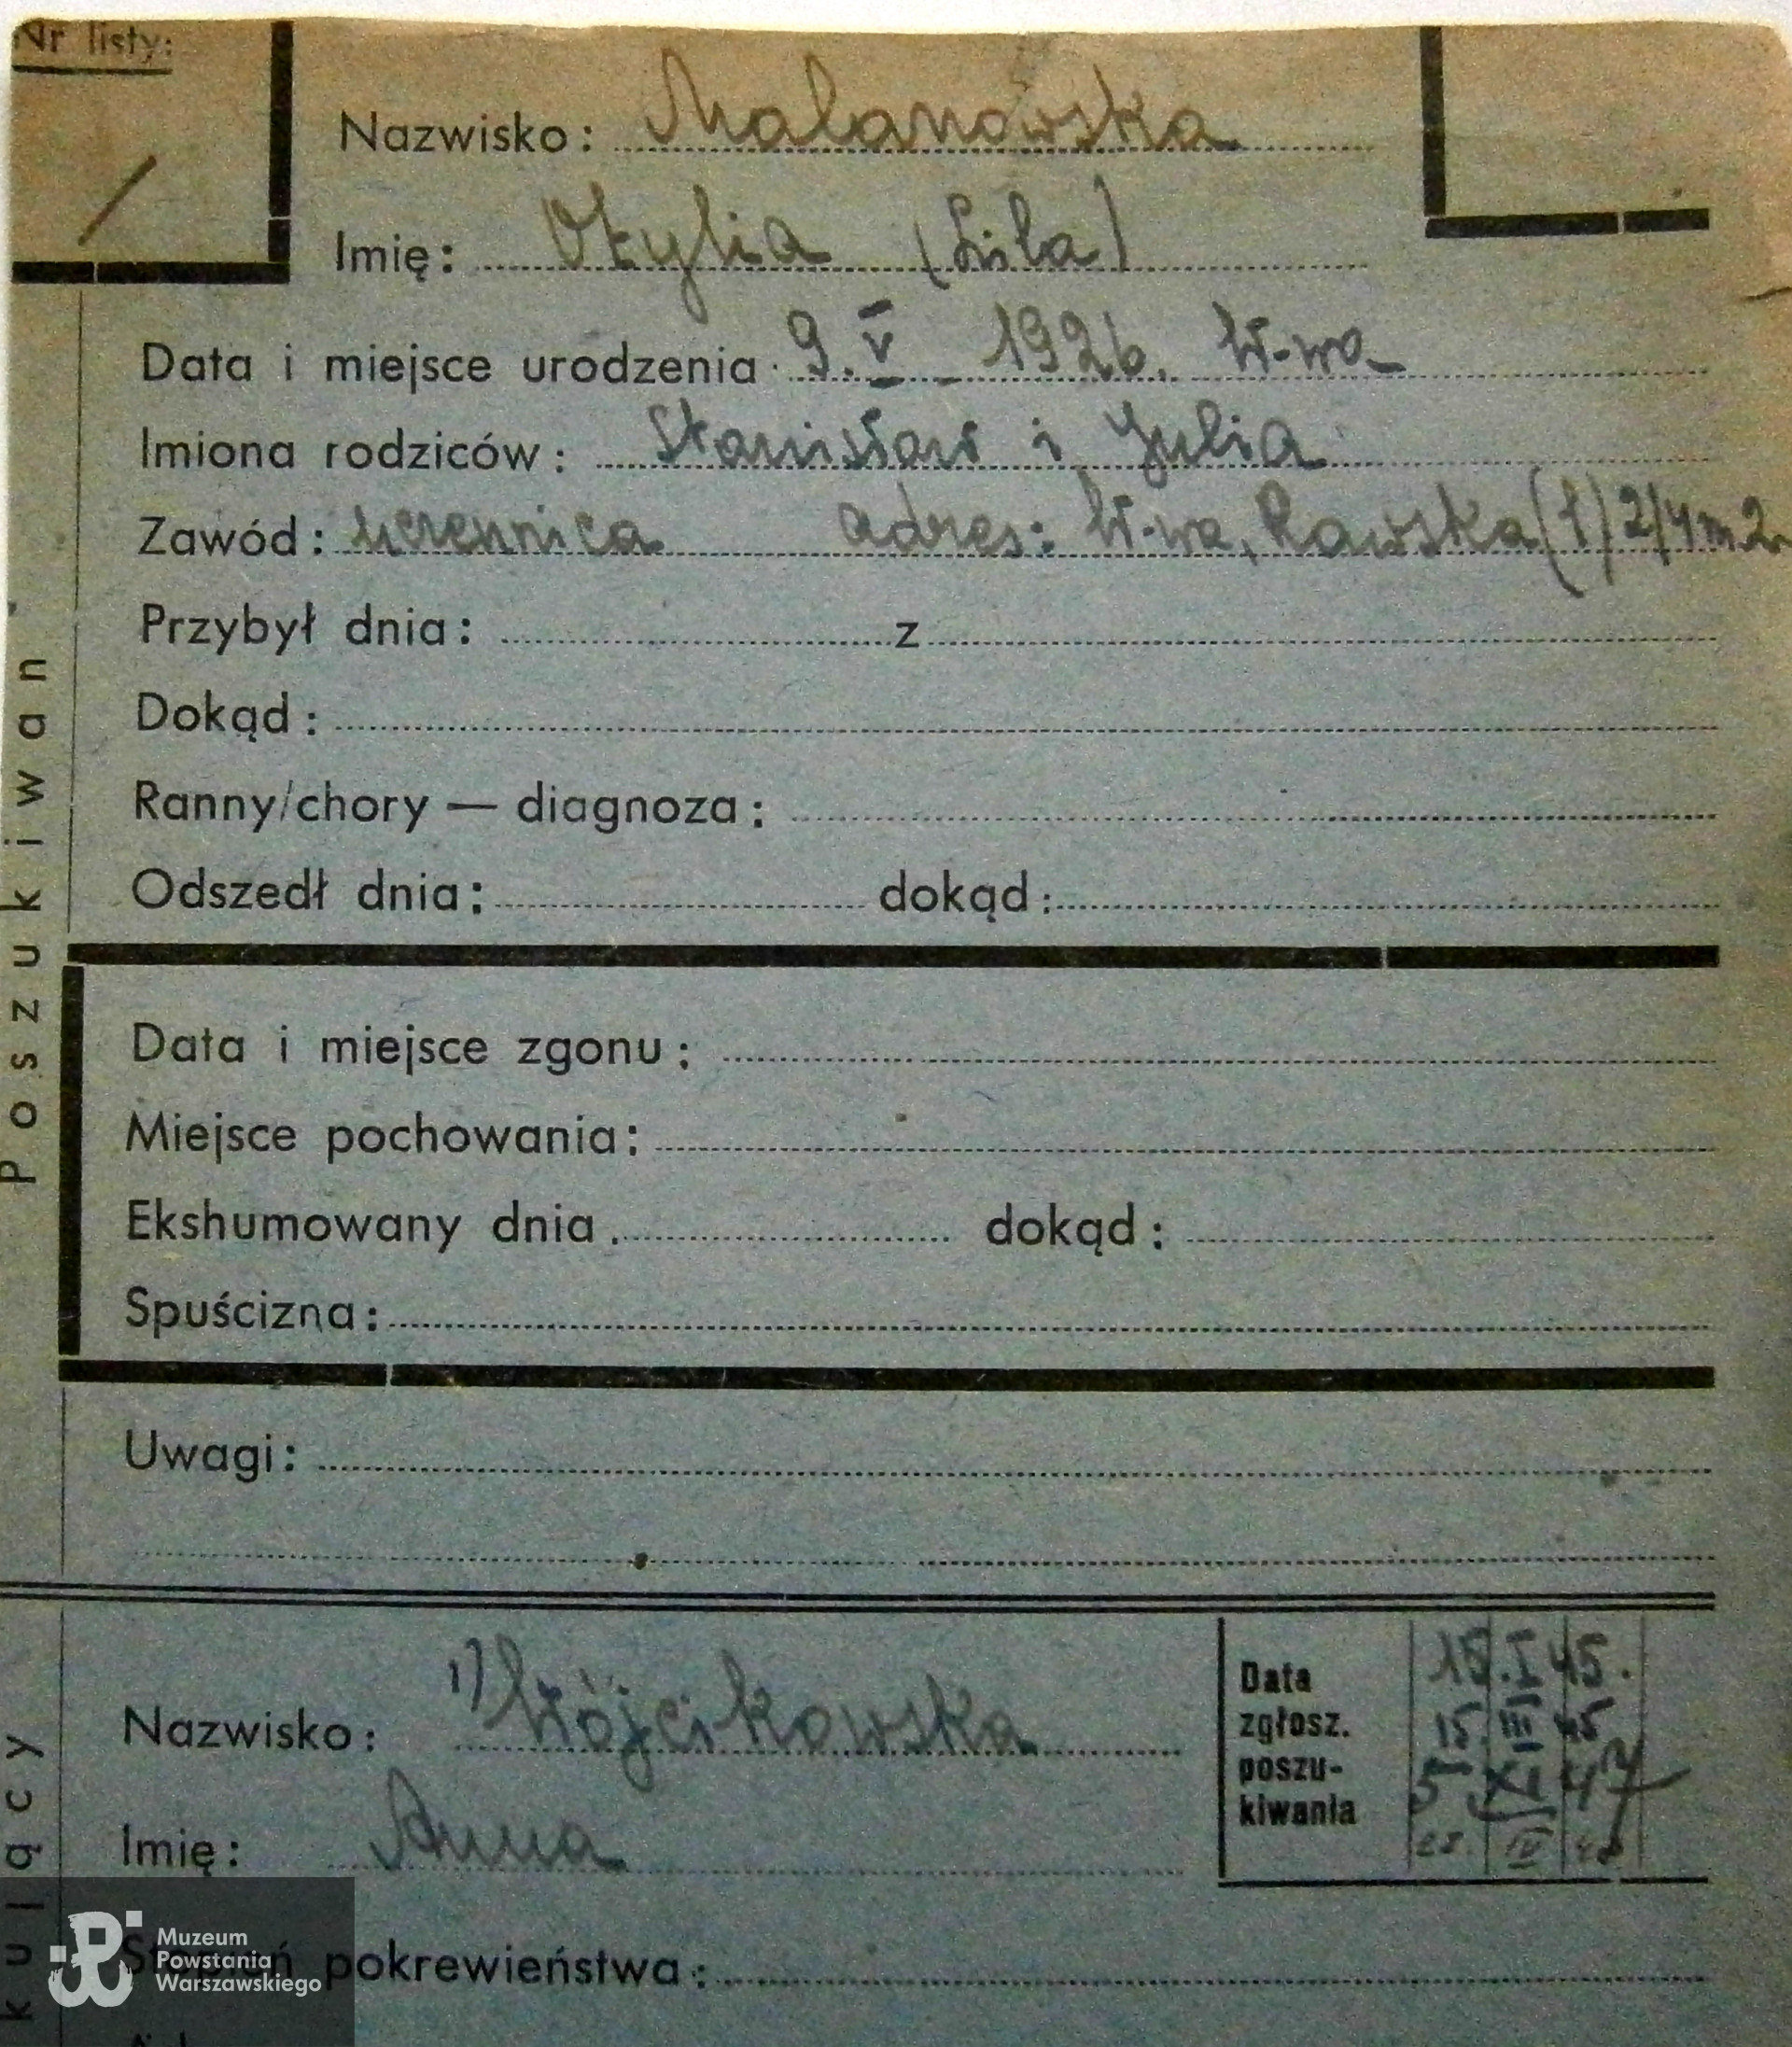 Nr listy:
/
Nazwisko: Malanowska
Imię: Otylia (Lila)
Data i miejsce urodzenia 9.V 1926. W-wa
Imiona rodziców: Stanisław i Julia
Zawód: uczennica adres: W-wa, Rawska (1) 2/4 m 2
Przybył dnia: z
Dokąd:
Ranny/chory — diagnoza:
Odszedł dnia: dokąd:
Data i miejsce zgonu:
Miejsce pochowania:
Ekshumowany dnia. dokąd:
Spuścizna:
Uwagi:
Poszukiwan
Nazwisko: 1) Wójcikowska
Imię: Anna
Data zgłosz. poszu-
kiwania
15.I 45.
15.III 45
5 XI 47
IV
Stopień pokrewieństwa:
kujący
Muzeum
Powstania
Warszawskiego